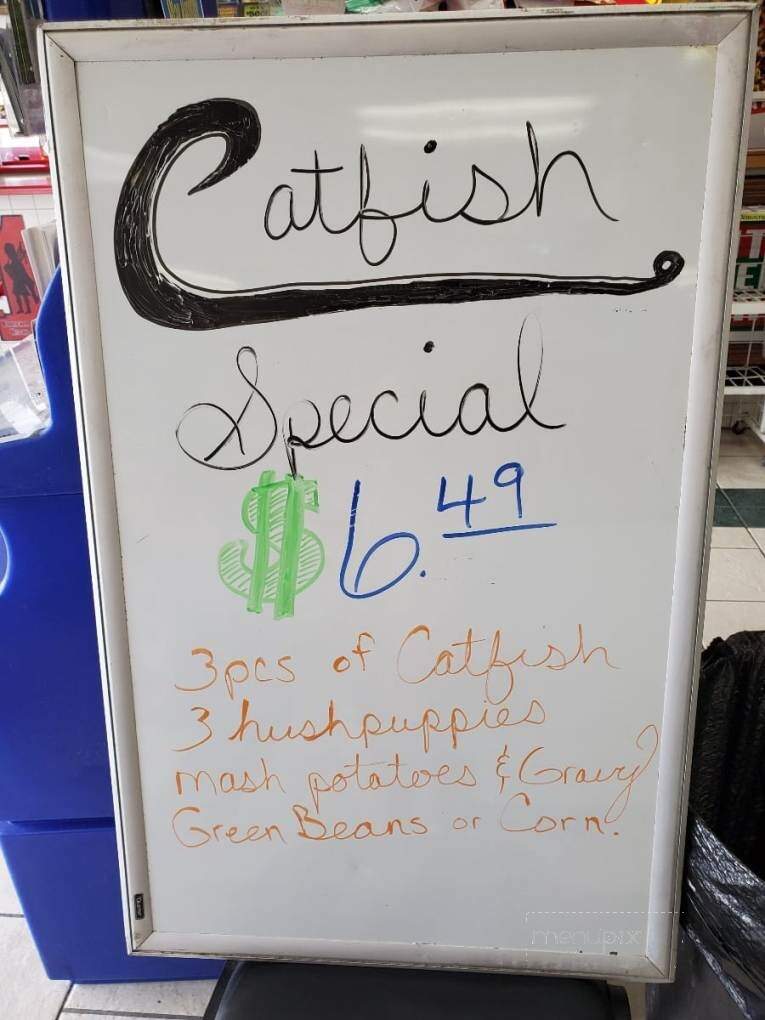 Catfish
Special
$6.49
3pcs of Catfish
3 hushpuppies
mash potatoes & Gravy
Green Beans or Corn.
menupix